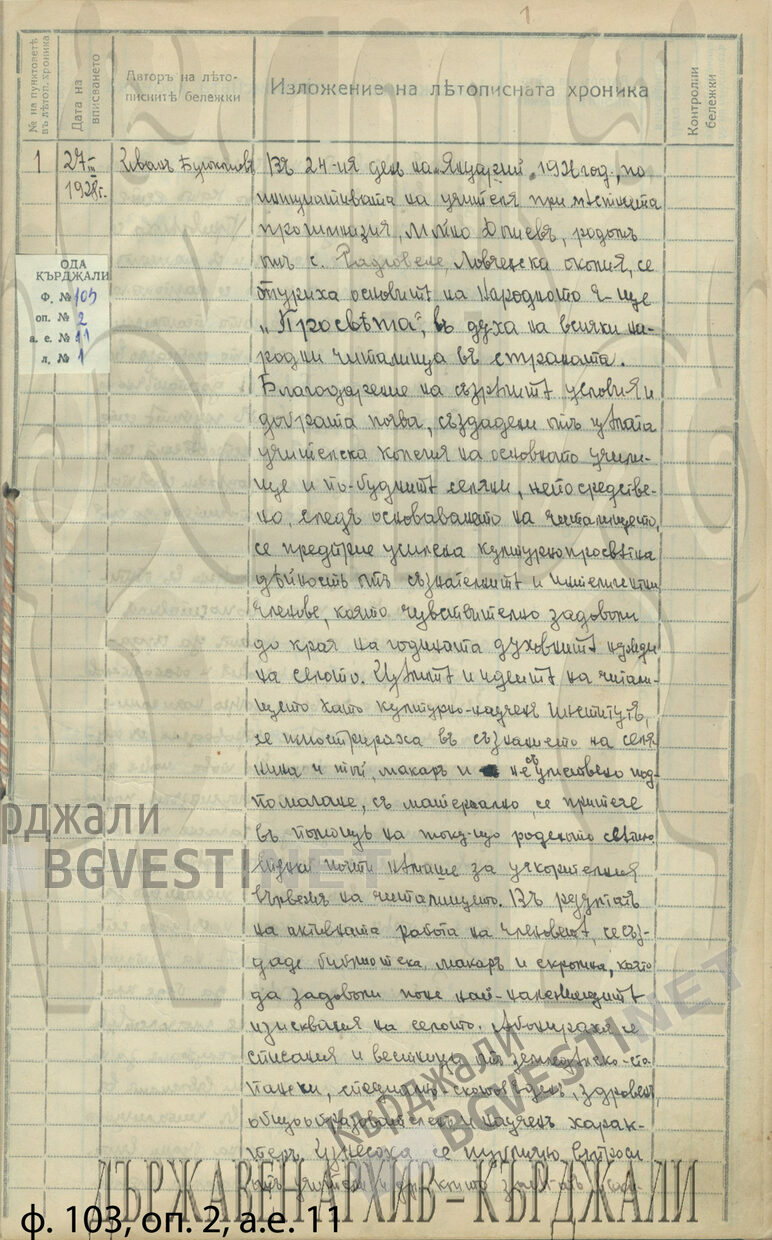 1
№ на пунктоветѣ въ лѣтоп. хроника
Дата на вписването
Авторъ на лѣто-
писнитѣ бележки
Изложение на лѣтописната хроника
Контролни бележки
1
27
III
1928г.
Иванъ
Въ 24-ия день на „Януарий“ 192 год., по
инициативата на учителя при местната
прогимназия, Митко родомъ
отъ с. Радювене, Ловчанска околия, се
туриха основитѣ на Народното ч-ще
„Просвѣта“, въ духа на всички на-
родни читалища въ страната.
Благодарение на съзрѣлитѣ условия и
добрата почва, създадени отъ цѣлата
учителска колегия на основното учили-
ще и по-буднитѣ селяни, непосредстве-
но, следъ основаването на читалището,
се предприе усилена културнопросвѣтна
дѣйность отъ съзнателнитѣ и интелигентни
членове, която чувствително задоволи
до края на годината духовнитѣ нужди
на селото. Целитѣ и идеитѣ на читали-
щето като културно-наученъ институтъ,
се въ съзнанието на селя-
нина и той, макаръ и не под-
помагане, съ материално, се притече
въ помощь на току-що роденото
почти за ускорителния
вървежъ на читалището. Въ резултатъ
на активната работа на членоветѣ, се съз-
даде библиотека, макаръ и скромна, която
да задоволи поне най-належащитѣ
изисквания на селото. Абонираха се
списания и вестници отъ земледѣлско-сто-
пански, специално-скотовъденъ, здравенъ,
общообразователенъ и наученъ харак-
теръ. Изнесоха се въпроси
отъ учители и
ОДА
КЪРДЖАЛИ
Ф. № 103
оп. № 2
а. е. № 11
л. № 1
рджали
BGVESTI
Кърджали
BGVESTINET
ДЪРЖАВЕН АРХИВ – КЪРДЖАЛИ
ф. 103, оп. 2, а.е. 11